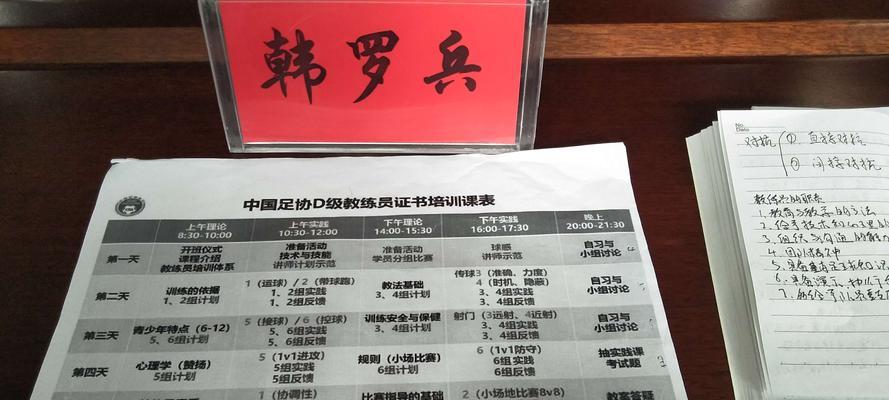 韩罗兵
中国足协D级教练员证书培训课表
上午理论 上午实践 下午理论 下午实践 晚上
8:30-10:00 10:30-12:00 14:00-15:30 16:00-17:30 20:00-21:30
第一天
开班仪式
课程介绍
教练员培训体系
准备活动
技术与技能
讲师计划示范
准备活动
学员分组比赛
球感
讲师计划示范
自习与
小组讨论
第二天
训练的依据
1、2组计划
1（运球）/ 2（带球跑）
1、2组实践
1、2组反馈
教法基础
3、4组计划
传球3（准确、力度）
4（时机、隐蔽）
3、4组实践
3、4组反馈
自习与
小组讨论
第三天
青少年特点（6-12）
5、6组计划
5（接球）/ 6（控球）
5、6组实践
5、6组反馈
训练安全与保健
3、4组计划
射门（3远射、4近射）
3、4组实践
3、4组反馈
自习与
小组讨论
第四天
心理学（赞扬）
5组计划
5（1v1进攻）
5组实践
5组反馈
规则（小场比赛）
6组计划
6（1v1防守）
6组实践
6组反馈
抽实践课
考试题
1（协调性）
比赛指导的基础
2（小场地比赛8v8）
教案答疑
No.
Date
对抗
① 直接对抗
② 间接对抗
教练员的职责